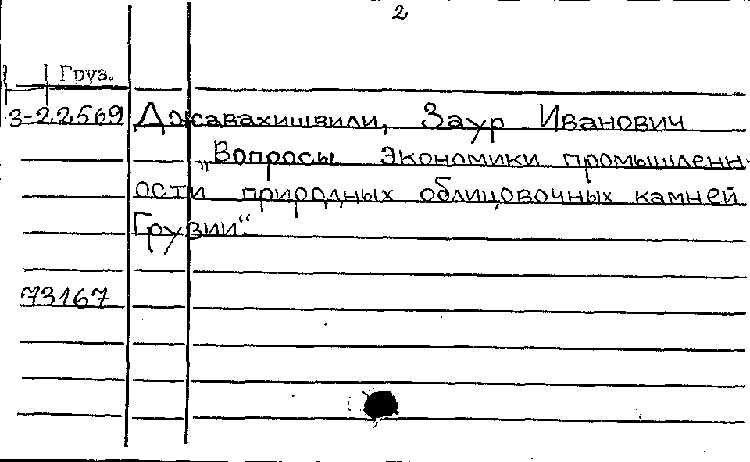 2
Груз.
3-22569 Джавахишвили, Заур Иванович
„Вопросы экономики промышленн-
ости природных облицовочных камней
Грузии“.
73167